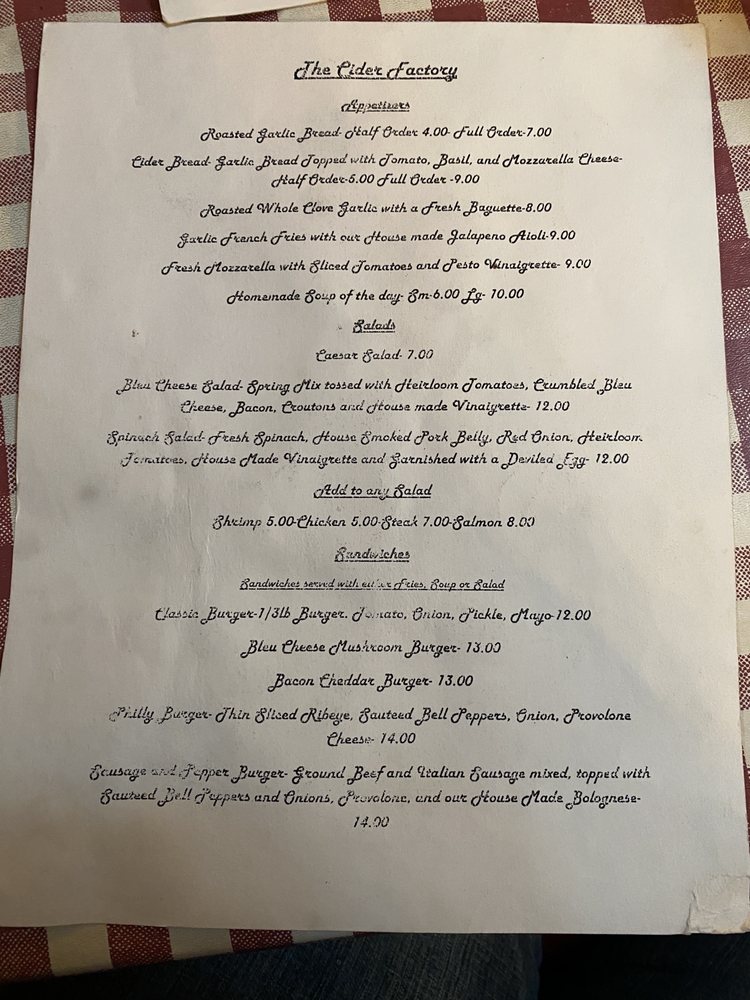 The Cider Factory
Appetizers
Roasted Garlic Bread- Half Order 4.00- Full Order-7.00
Cider Bread- Garlic Bread Topped with Tomato, Basil, and Mozzarella Cheese-
Half Order-5.00 Full Order -9.00
Roasted Whole Clove Garlic with a Fresh Baguette-8.00
Garlic French Fries with our House made Jalapeno Aioli-9.00
Fresh Mozzarella with Sliced Tomatoes and Pesto Vinaigrette- 9.00
Homemade Soup of the day- Sm-6.00 Lg- 10.00
Salads
Caesar Salad- 7.00
Bleu Cheese Salad- Spring Mix tossed with Heirloom Tomatoes, Crumbled Bleu
Cheese, Bacon, Croutons and House made Vinaigrette- 12.00
Spinach Salad- Fresh Spinach, House Smoked Pork Belly, Red Onion, Heirloom
Tomatoes, House Made Vinaigrette and Garnished with a Deviled Egg- 12.00
Add to any Salad
Shrimp 5.00-Chicken 5.00-Steak 7.00-Salmon 8.00
Sandwiches
Sandwiches served with either Fries, Soup or Salad
Classic Burger-1/3lb Burger. Tomato, Onion, Pickle, Mayo-12.00
Bleu Cheese Mushroom Burger- 13.00
Bacon Cheddar Burger- 13.00
Philly Burger- Thin Sliced Ribeye, Sauteed Bell Peppers, Onion, Provolone
Cheese- 14.00
Sausage and Pepper Burger- Ground Beef and Italian Sausage mixed, topped with
Sauteed Bell Peppers and Onions, Provolone, and our House Made Bolognese-
14.00